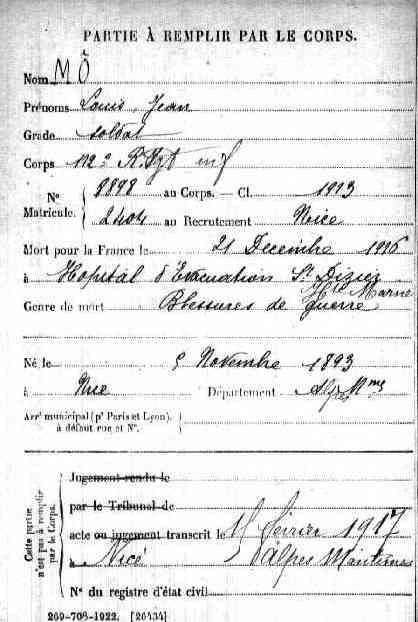 PARTIE À REMPLIR PAR LE CORPS.
Nom MÔ
Prénoms Louis, Jean
Grade soldat
Corps 112e R.Igt inf
N° Matricule. 8898 au Corps. — Cl. 1913
2404 au Recrutement Nice
Mort pour la France le 21 Decembre 1916
à Hopital d'Evacuation St Dizier
Hte Marne
Genre de mort Blessures de Guerre
Né le 5 Novembre 1893
à Nice Département Alpes Mmes
Arrt municipal (pr Paris et Lyon).
à défaut rue et N°.
Cette partie n'est pas à remplir par le Corps.
Jugement rendu le
par le Tribunal de
acte ou jugement transcrit le février 1917
à Nice Alpes Maritimes
N° du registre d'état civil
269-708-1922. [26434]